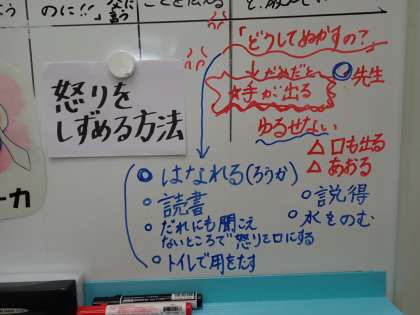 のに!!
ことを伝える
「どうしてぬかすの?
怒りを
しずめる方法
先生
手が出る
ゆるせない
△口も出る
△あおる
はなれる(ろうか)
読書
だれにも聞こえ
ないところで怒りを口にする
トイレで用をたす
説得
水をのむ